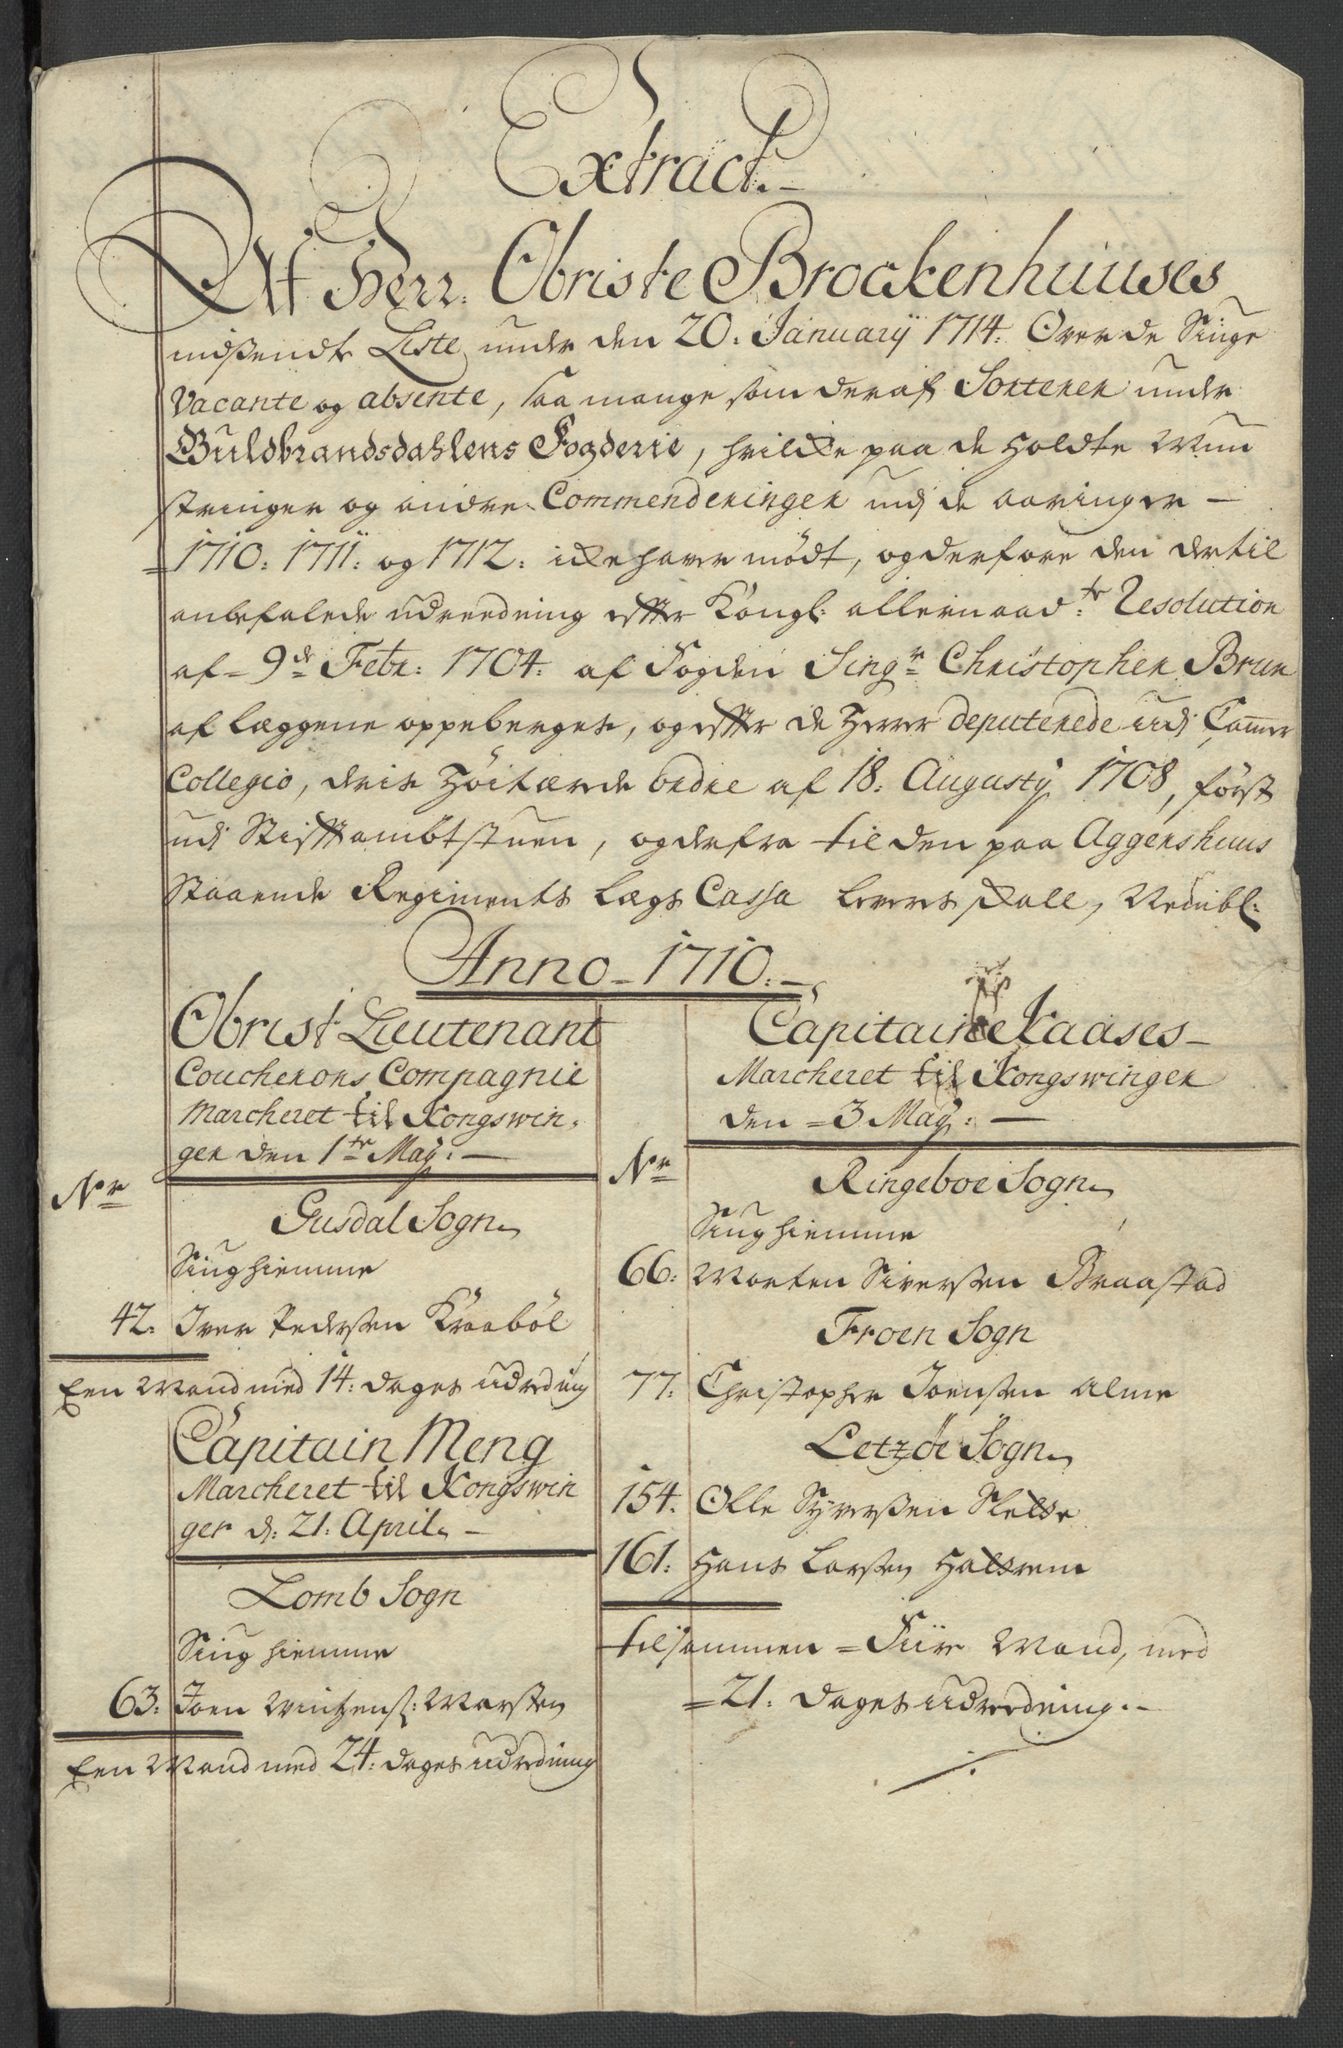 Extract.
Af Herr. Obriste Brockenhuuses
indsendte Liste, under den 20. January 1714. Over de Siuge
Vacante og absente, saa mange som deraf Sorterer under
Guldbrandsdahlens Fogderie, hvilcke paa de holdte Mun
stringer og andre Commenderinger udj de aaringer
1710: 1711: og 1712: icke haver mødt, og derfore den dertil
anbefalede udreedning effter Kongl: allernaad:te Resolution
af 9de Febr: 1704. af Fogden Sing:r Christopher Brun
af læggene oppeberget, og effter de Herrer deputerede udj Cammer
Collegio, deris Høitærede ordre af 18. Augusty 1708, først
udj Stifftambtstuen, og derfra til den paa Aggershuus
Staaende Regiments Lægs Cassa levers skall, Nembl:
Anno 1710.
Obrist Lieutenant
Coucherons Compagnie
Marcheret til Kongswin,
ger den 1te May.
Nr
Gusdal Sogn
Siug hiemme
42. Iver Pedersen Kraabøl
Een Mand med 14. dages udreding
Capitain Meng
Marcheret til Kongswin
ger d: 21. April
Lomb Sogn
Siug hiemme
63. Joen Mintzens: Marsten
Een Mand med 24. dages udredning
Capitain Kaases
Marcheret til Kongswinger
den 3 May.
Nr
Ringeboe Sogn
Siug hiemme
66. Morten Siversen Braastad
Froen Sogn
77. Christopher Joensen Alme
Letzøe Sogn
154. Olle Syversen Slette
161. Hans Larsen
tilsammen Fiire Mand, med
21. dages udreedning.